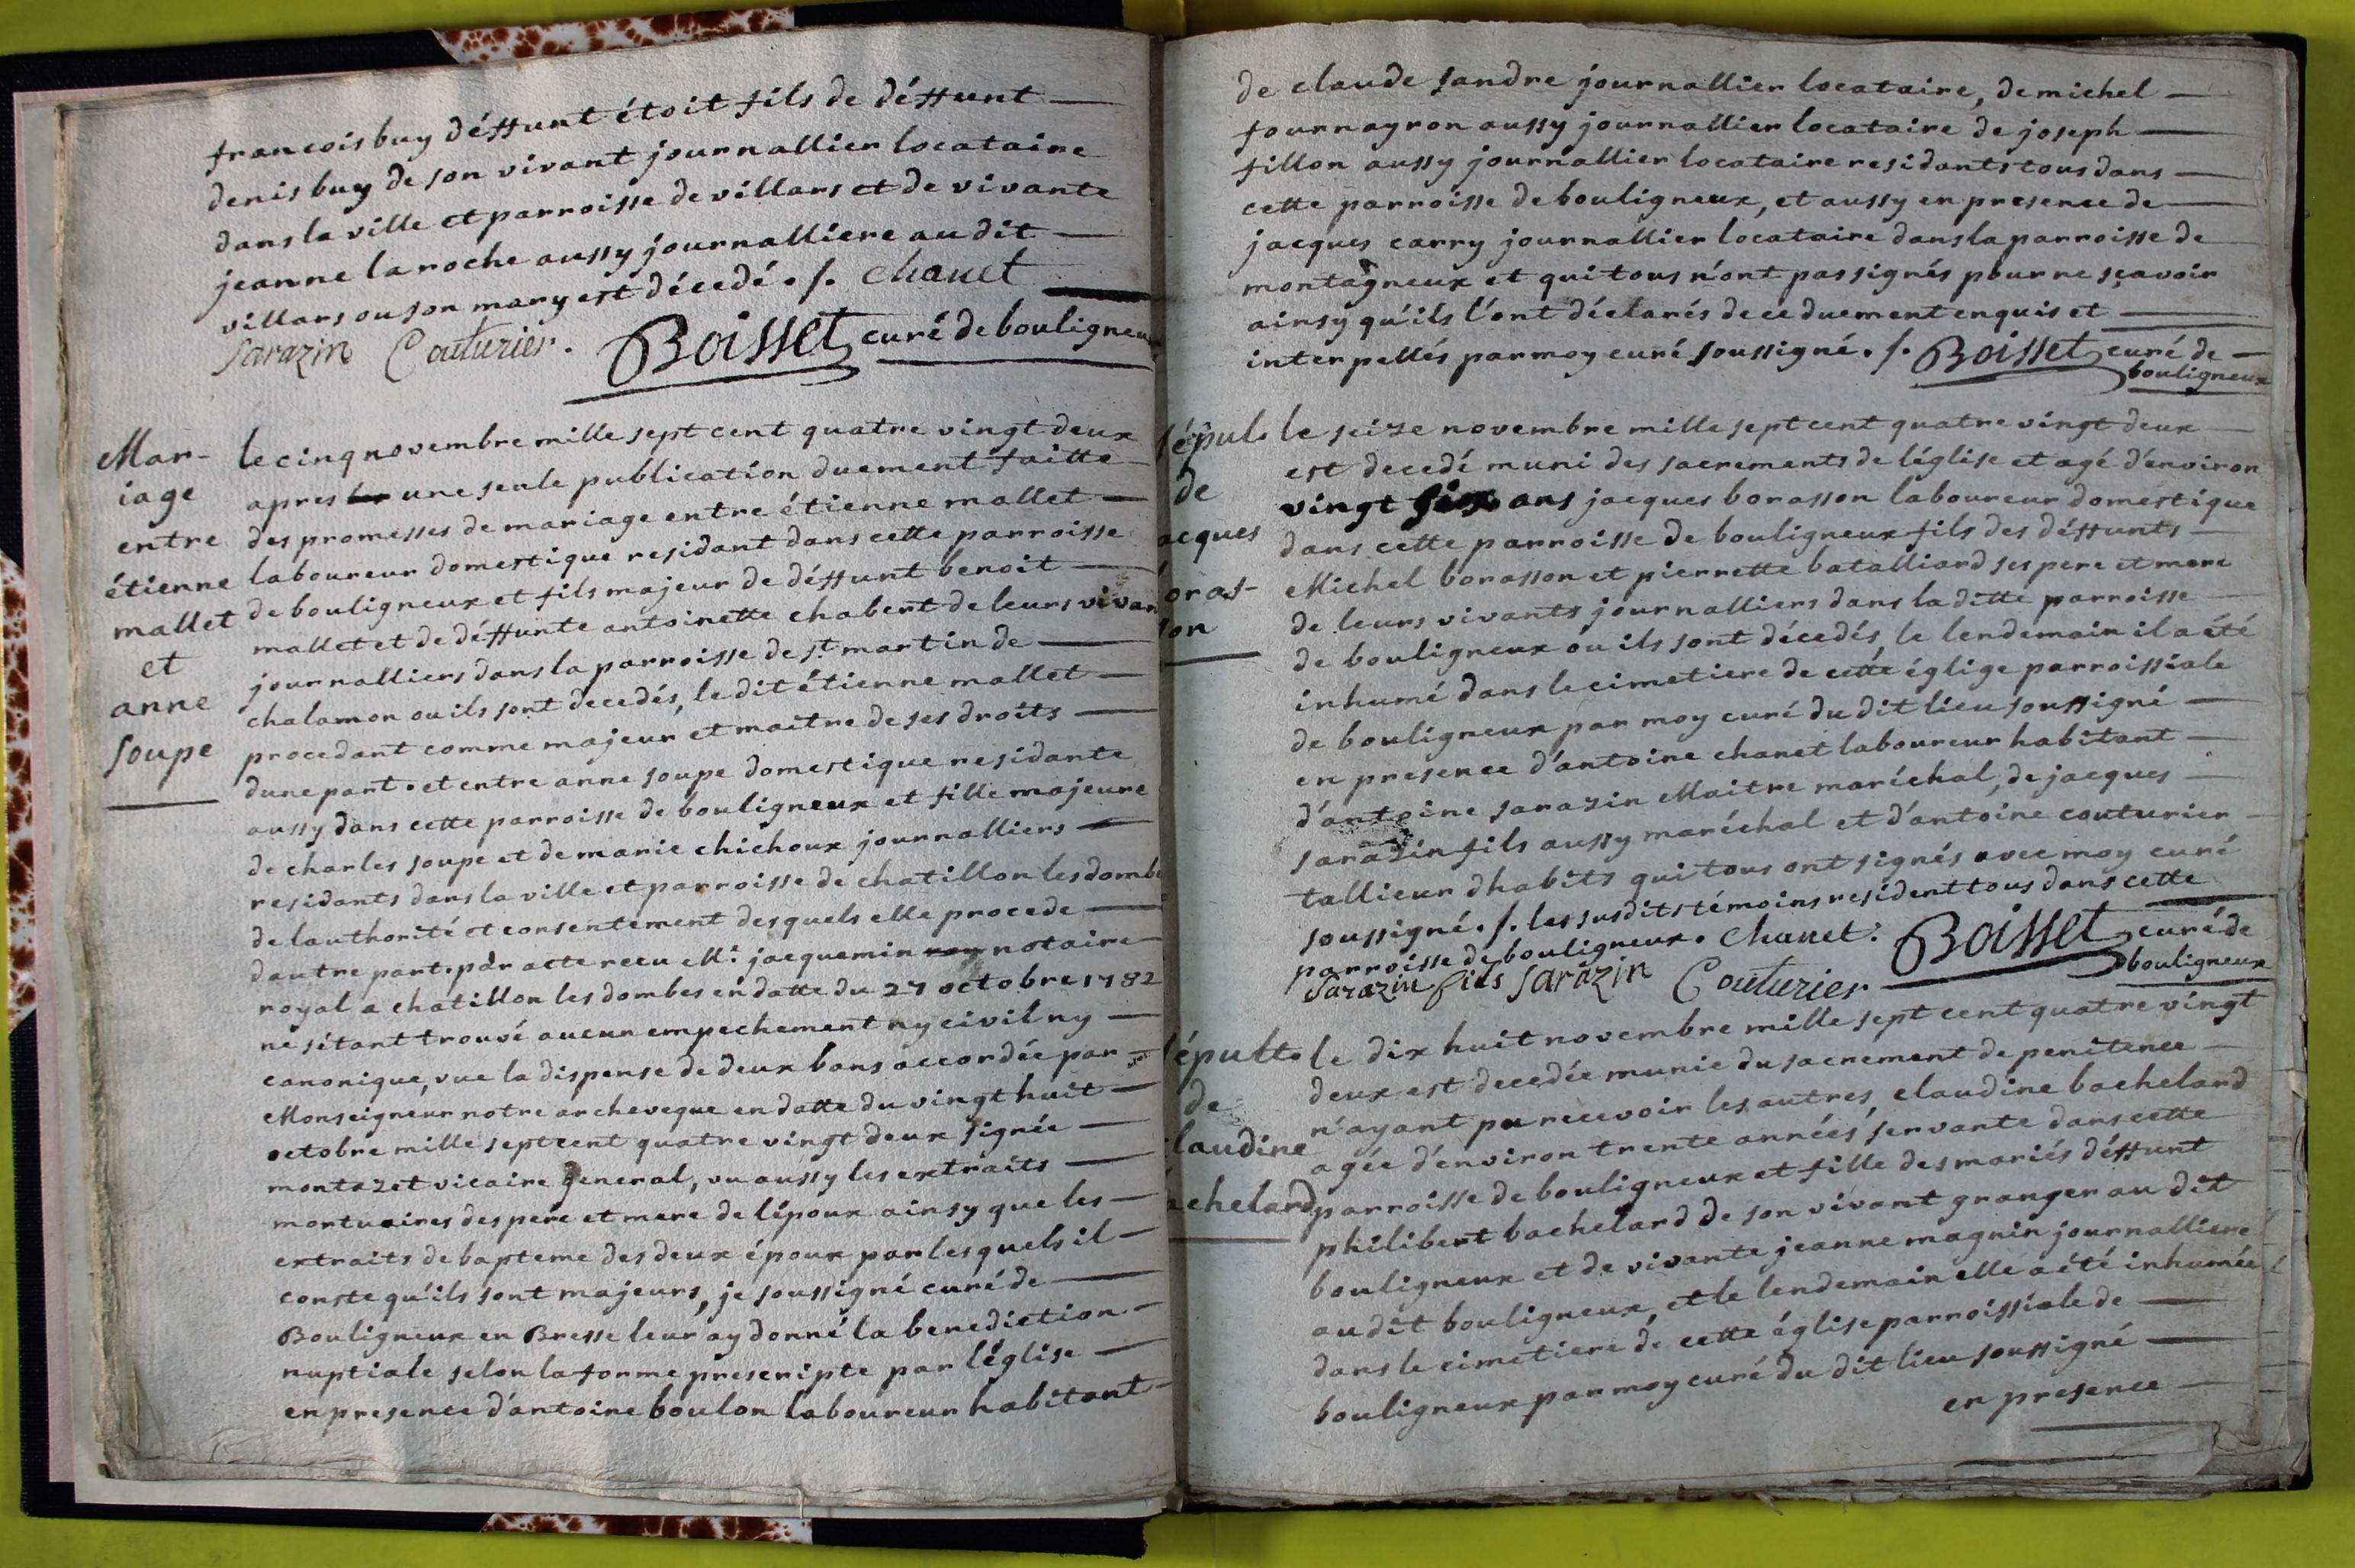 francois buy déffunt étoit fils de déffunt
denis buy de son vivant journallier locataire
dans la ville et parroisse de villars et de vivante
jeanne la roche aussy journalliere au dit
villars ou son mary est décedé ./. Chanet
Sarazin Couturier. Boisset curé de bouligneux
Mar-
iage
entre
étienne
mallet
et
anne
soupe
le cinq novembre mille sept cent quatre vingt deux
apres une seule publication duement faitte
des promesses de mariage entre étienne mallet
laboureur domestique residant dans cette parroisse
de bouligneux et fils majeur de déffunt benoit
mallet et de déffunte antoinette chabert de leurs vivan
journalliers dans la parroisse de st martin de
chalamon ou ils sont decedés, le dit étienne mallet
procedant comme majeur et maitre de ses droits
dune part. et entre anne soupe domestique residante
aussy dans cette parroisse de bouligneux et fille majeure
de charles soupe et de marie chichoux journalliers
residants dans la ville et parroisse de chatillon les dombe
de lauthorité et consentement desquels elle procede
dautre part. par acte recu Me. jacquemin notaire
royal a chatillon les dombes en datte du 27 octobre 1782
ne sétant trouvé aucun empechement ny civil ny
canonique, vue la dispense de deux bans accordée par
Monseigneur notre archeveque en datte du vingt huit
octobre mille sept cent quatre vingt deux signée
montazet vicaire general, vu aussy les extraits
mortuaires des pere et mere de lépoux ainsy que les
extraits de bapteme des deux époux par lesquels il
conste qu'ils sont majeurs, je soussigné curé de
Bouligneux en Bresse leur ay donné la benediction
nuptiale selon la forme prescripte par léglise
en presence d'antoine boulon laboureur habitant
de claude sandre journallier locataire, de michel
fournayron aussy journallier locataire de joseph
fillon aussy journallier locataire residants tous dans
cette parroisse de bouligneux, et aussy en presence de
jacques carry journallier locataire dans la parroisse de
montagneux et qui tous n'ont pas signés pour ne sçavoir
ainsy qu'ils l'ont déclarés de ce duement enquis et
interpellés par moy curé soussigné ./. Boisset curé de
bouligneux
sépul.
de
acques
oras-
son
le seize novembre mille sept cent quatre vingt deux
est decedé muni des sacrements de léglise et agé d'environ
vingt six ans jacques borasson laboureur domestique
dans cette parroisse de bouligneux fils des déffunts
Michel borasson et pierrette batalliard ses pere et mere
de leurs vivants journalliers dans la ditte parroisse
de bouligneux ou ils sont décedés, le lendemain il a été
inhumé dans le cimetiere de cette églige parroissiale
de bouligneux par moy curé du dit lieu soussigné
en presence d'antoine chanet laboureur habitant
d'antoine sarazin Maitre maréchal, de jacques
sarazin fils aussy maréchal et d'antoine couturier
tallieur dhabits qui tous ont signés avec moy curé
soussigné ./. les susdits témoins resident tous dans cette
parroisse de bouligneux. Chanet. Boisset curé de
bouligneux
Sarazin fils Sarazin Couturier
sépult.
de
laudine
achelard
le dix huit novembre mille sept cent quatre vingt
deux est decedée munie du sacrement de penitence
n'ayant pu recevoir les autres, claudine bachelard
agée d'environ trente années, servante dans cette
parroisse de bouligneux et fille des mariés déffunt
philibert bachelard de son vivant granger au dit
bouligneux et de vivante jeanne magnin journalliere
au dit bouligneux, et le lendemain elle a été inhumée
dans le cimetiere de cette église parroissiale de
bouligneux par moy curé du dit lieu soussigné
en presence